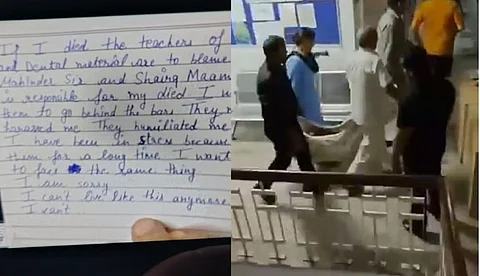 If I died the teachers of
and Dental material are to blame
Mahinder Sir and Shaing Maam
is responible for my died I w
them to go behind the bars They
harassed me They humiliated me
I have been in stress because
them for a long time I want
to face the same thing
I am sorry
I can't live like this anymore
I can't